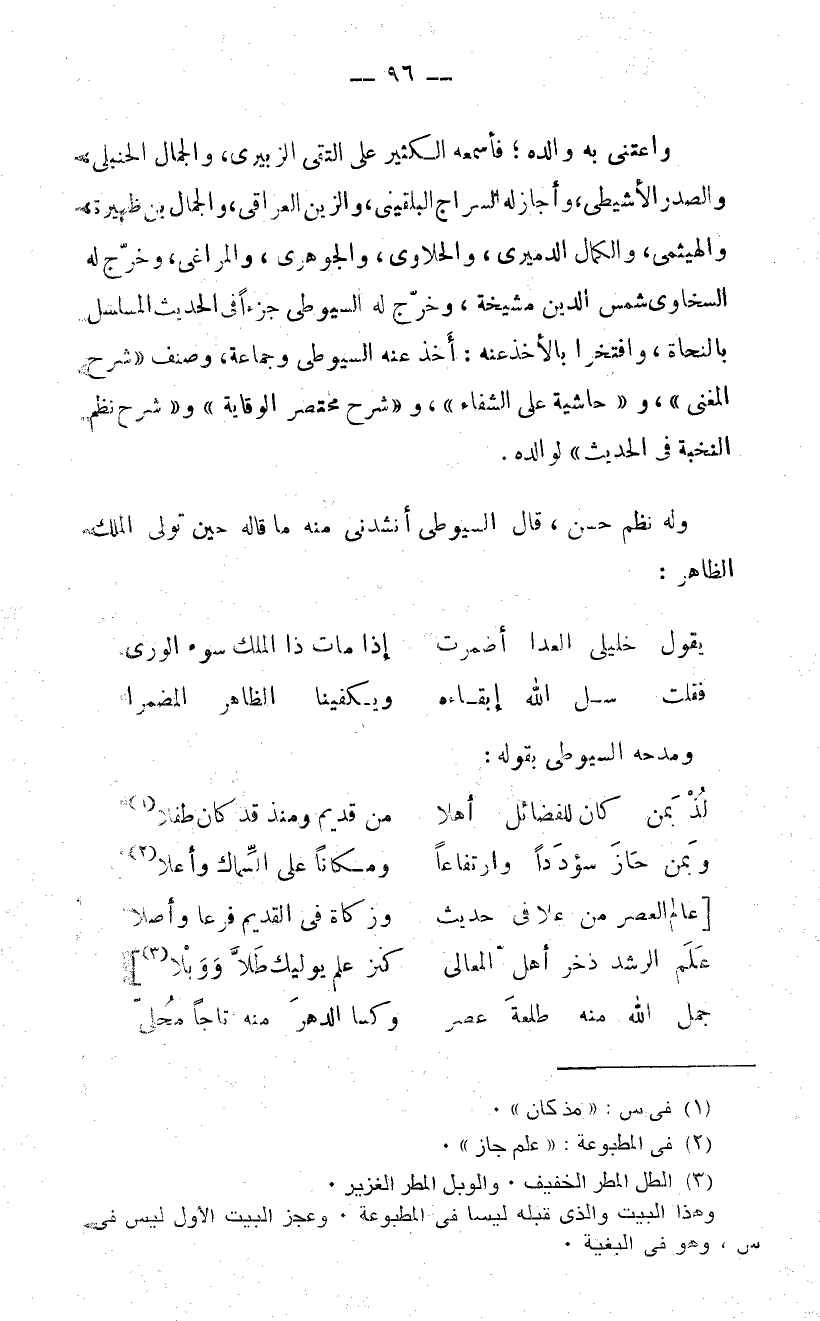 — ٩٦ —
واعتنى به والده ؛ فأسمعه الكثير على التقى الزبيرى، والجمال الحنبلى،
والصدر الأشيطى، وأجاز له السراج البلقينى، والزين العراقى، والجمال بن ظهيرة،
والهيثمى، والكمال الدميرى ، والحلاوى ، والجوهرى ، والمراغى، وخرّج له
السخاوى شمس الدين مشيخة ، وخرّج له السيوطى جزءاً فى الحديث المسلسل
بالنحاة ، وافتخرا بالأخذ عنه : أَخذ عنه السيوطى وجماعة، وصنف «شرح
المغنى » ، و « حاشية على الشفاء » ، و «شرح مختصر الوقاية » و« شرح نظم
النخبة فى الحديث» لوالده .
وله نظم حسن ، قال السيوطى أنشدنى منه ما قاله حين تولى الملك
الظاهر :
يقول خليلى العدا أضمرت إذا مات ذا الملك سوء الورى
فقلت سـل الله إبقـاءه ويـكفينا الظاهر المضمرا
ومدحه السيوطى بقوله :
لُذْ بَمن كان للفضائل أهلا من قديم ومنذ قد كان طفلا(١)
وبَمن حَازَ سؤدَداً وارتفاعاً ومـكاناً على السِّماك وأعلا(٢)
[عالم العصر من علا فى حديث وزكاة فى القديم فرعا وأصلا
عَلَم الرشد ذخر أهل المعالى كنز علم يوليك طَلاًّ وَوَبْلا(٣)]
جمل الله منه طلعةَ عصر وكسا الدهرَ منه تاجاً مُحلّى
(١) فى س : « مذ كان » ٠
(٢) فى المطبوعة : « علم جاز » ٠
(٣) الطل المطر الخفيف ٠ والوبل المطر الغزير ٠
وهذا البيت والذى قبله ليسا فى المطبوعة ٠ وعجز البيت الأول ليس فى
س ، وهو فى البغية ٠